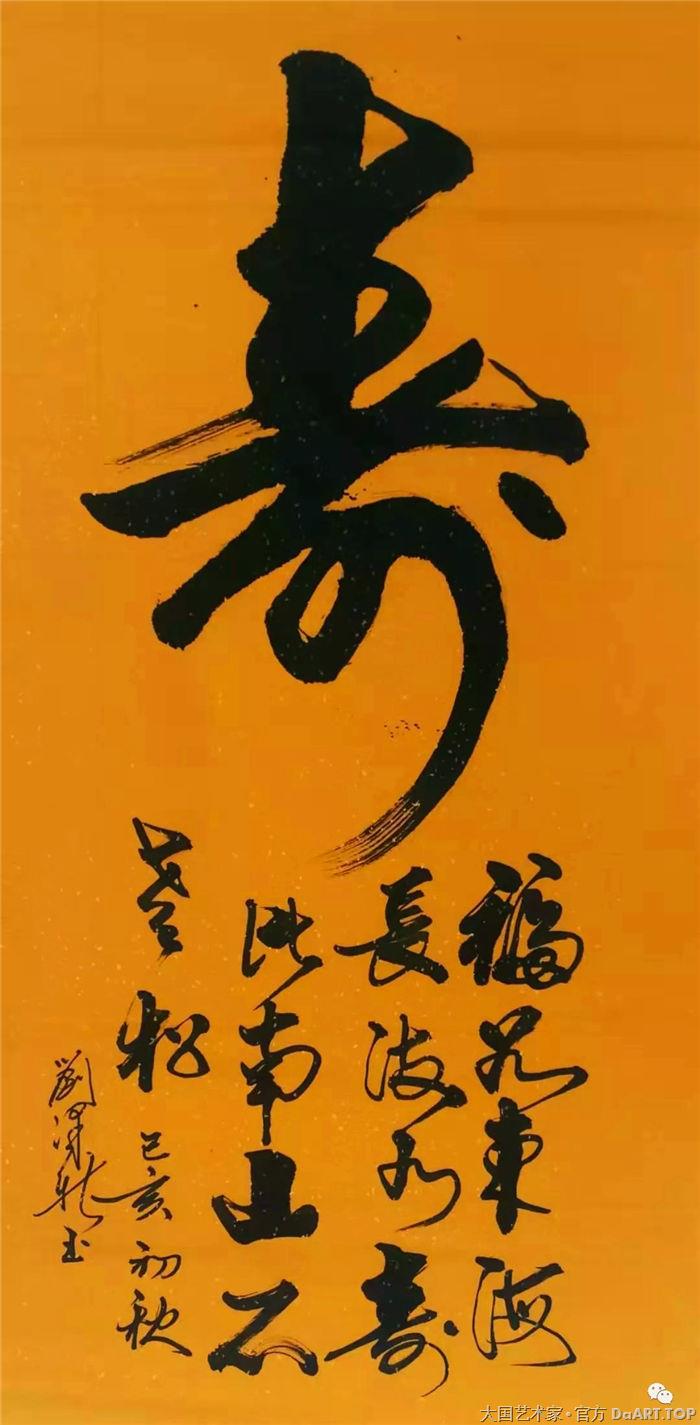 寿
福如東海
長流水寿
比南山不
老松 己亥初秋
劉
大国艺术家·官方 DaART.TOP